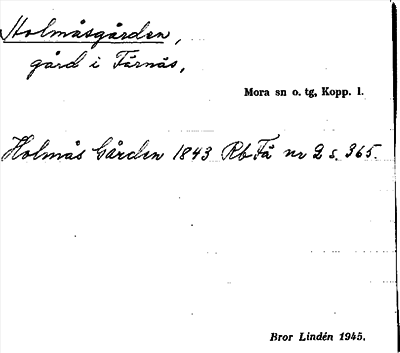 Holmåsgården,
gård i Färnäs,
Mora sn o. tg, Kopp. l.
Holmås Gården 1843 Rb Få nr 2 s. 365.
Bror Lindén 1945.